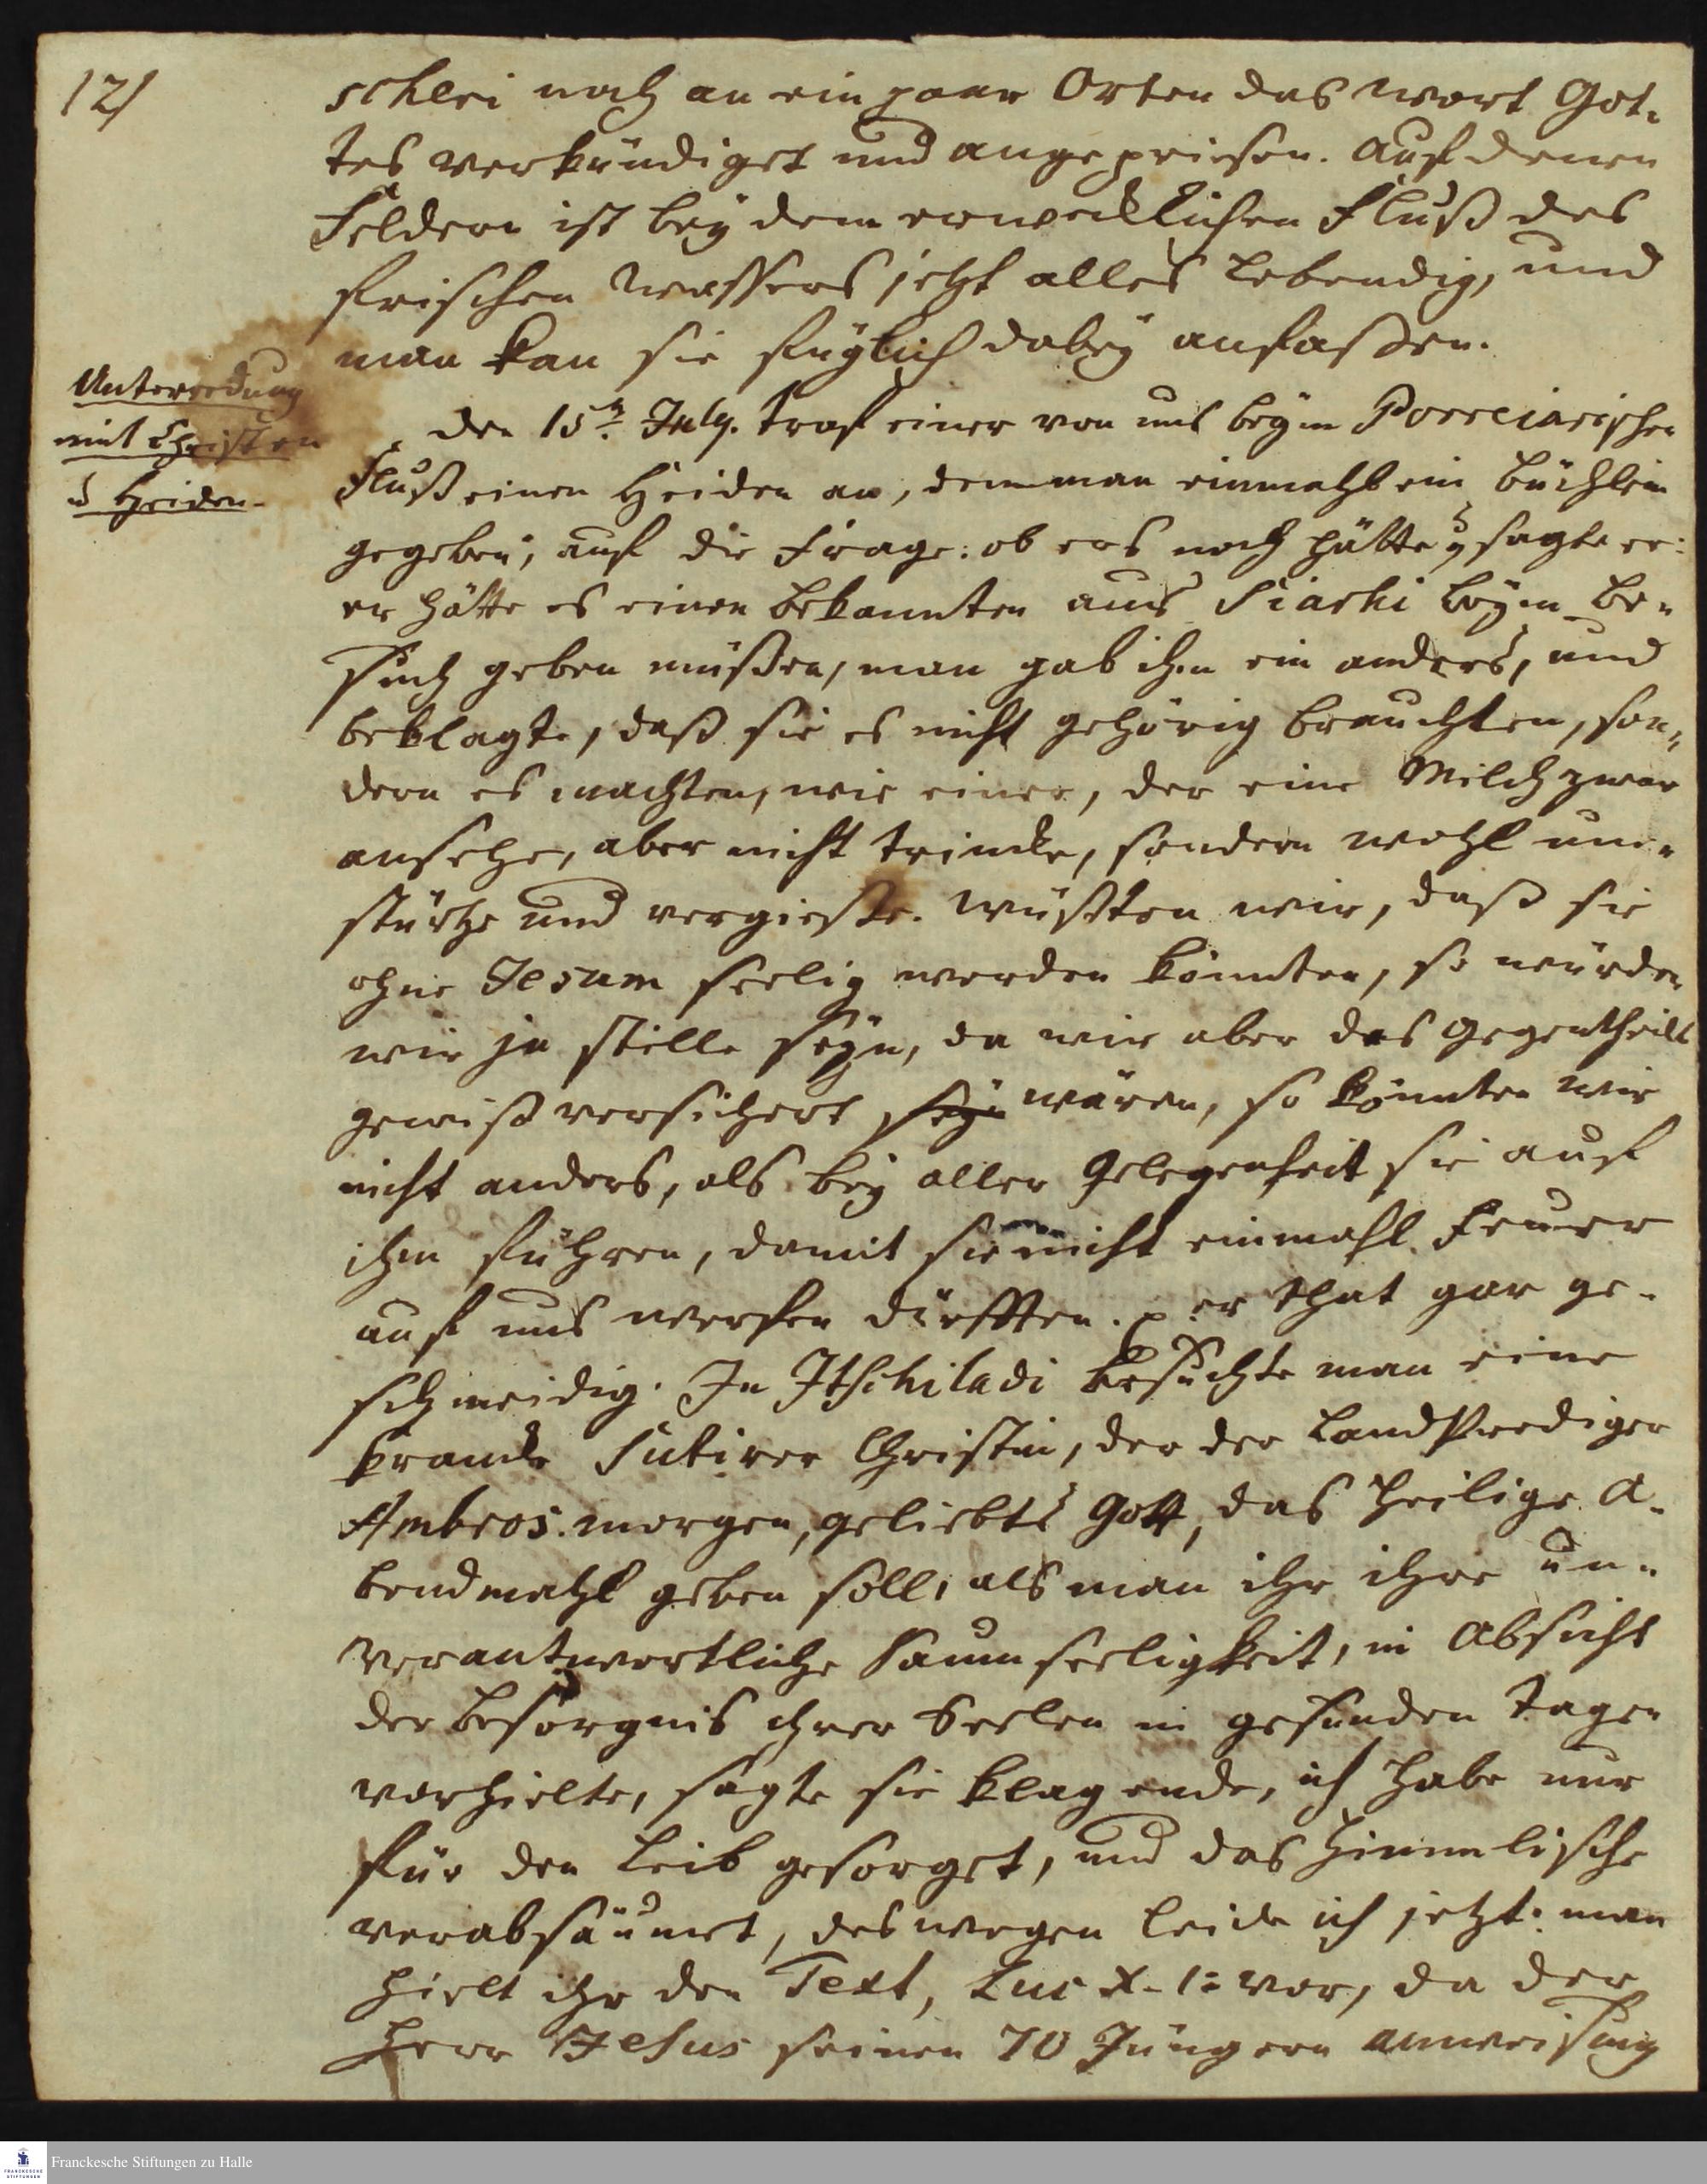 12/
schleri noch an ein paar Orten das Wort Got-
tes verkündiget und angepriesen. Auf denen
Feldern ist bey dem erwecklichen Fluß des
frischen Wassers jetzt alles lebendig, und
man kan sie füglich dabey anfaßen.
Unterredung
mit Christen
u Heiden.
Den 15n. July. traf einer von uns beym Porreiarischen
Fluß einen Heiden an, dem man einmahl ein Büchlein
gegeben, auf die Frage: ob ers noch hätte, sagte er:
er hätte es einen Bekannten aus Siarhi beym Be-
such geben müßen, man gab ihm ein anders, und
beklagte, daß sie es nicht gehörig brauchten, son-
dern es machten, wie einer, der eine Milch zwar
ansehe, aber nicht trincke, sondern wohl um-
stürtze und vergieße. Wüßten wir, daß sie
ohne Jesum seelig werden könnten, so würden
wir ja stille seyn, da wir aber das Gegentheil
gewiß versichert seyn wären, so könnten wir
nicht anders, als bey aller Gelegenheit sie auf
ihn führen, damit sie nicht einmahl Feuer
auf uns werfen dürfften. er that gar ge-
schmeidig. In Itschiladi besuchte man eine
krancke Sutirer Christin, der der Landprediger
Ambros. morgen, geliebts Gott, das heilige A-
bendmahl geben soll, als man ihr ihre un-
verantwortliche Saumseeligkeit, in Absicht
der Besorgnis ihrer Seelen in gesunden Tagen
vorhielte, sagte sie klagende, ich habe nur
für den Leib gesorget, und das himmlische
verabsäumet, deswegen leide ich jetzt. man
hielt ihr den Text, Luc X. 1: vor, da der
Herr Jesus seinen 70 Jüngern anweisung
Franckesche Stiftungen zu Halle